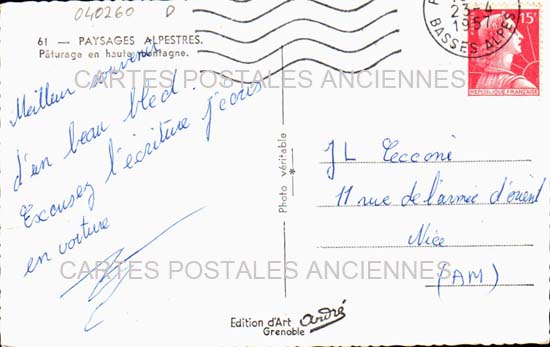 040260 D
61 — PAYSAGES ALPESTRES.
Pâturage en haute montagne.
Meilleur souvenir
d'un beau bled.
Excusez l'écriture j'écris
en voiture
Photo véritable
Edition d'Art André
Grenoble
23-4
1957
BASSES ALPES
15F
REPUBLIQUE FRANÇAISE
JL Cecconi
11 rue de l'armée d'orient
Nice
(AM)
CARTES POSTALES ANCIENNES
CARTES POSTALES ANCIENNES